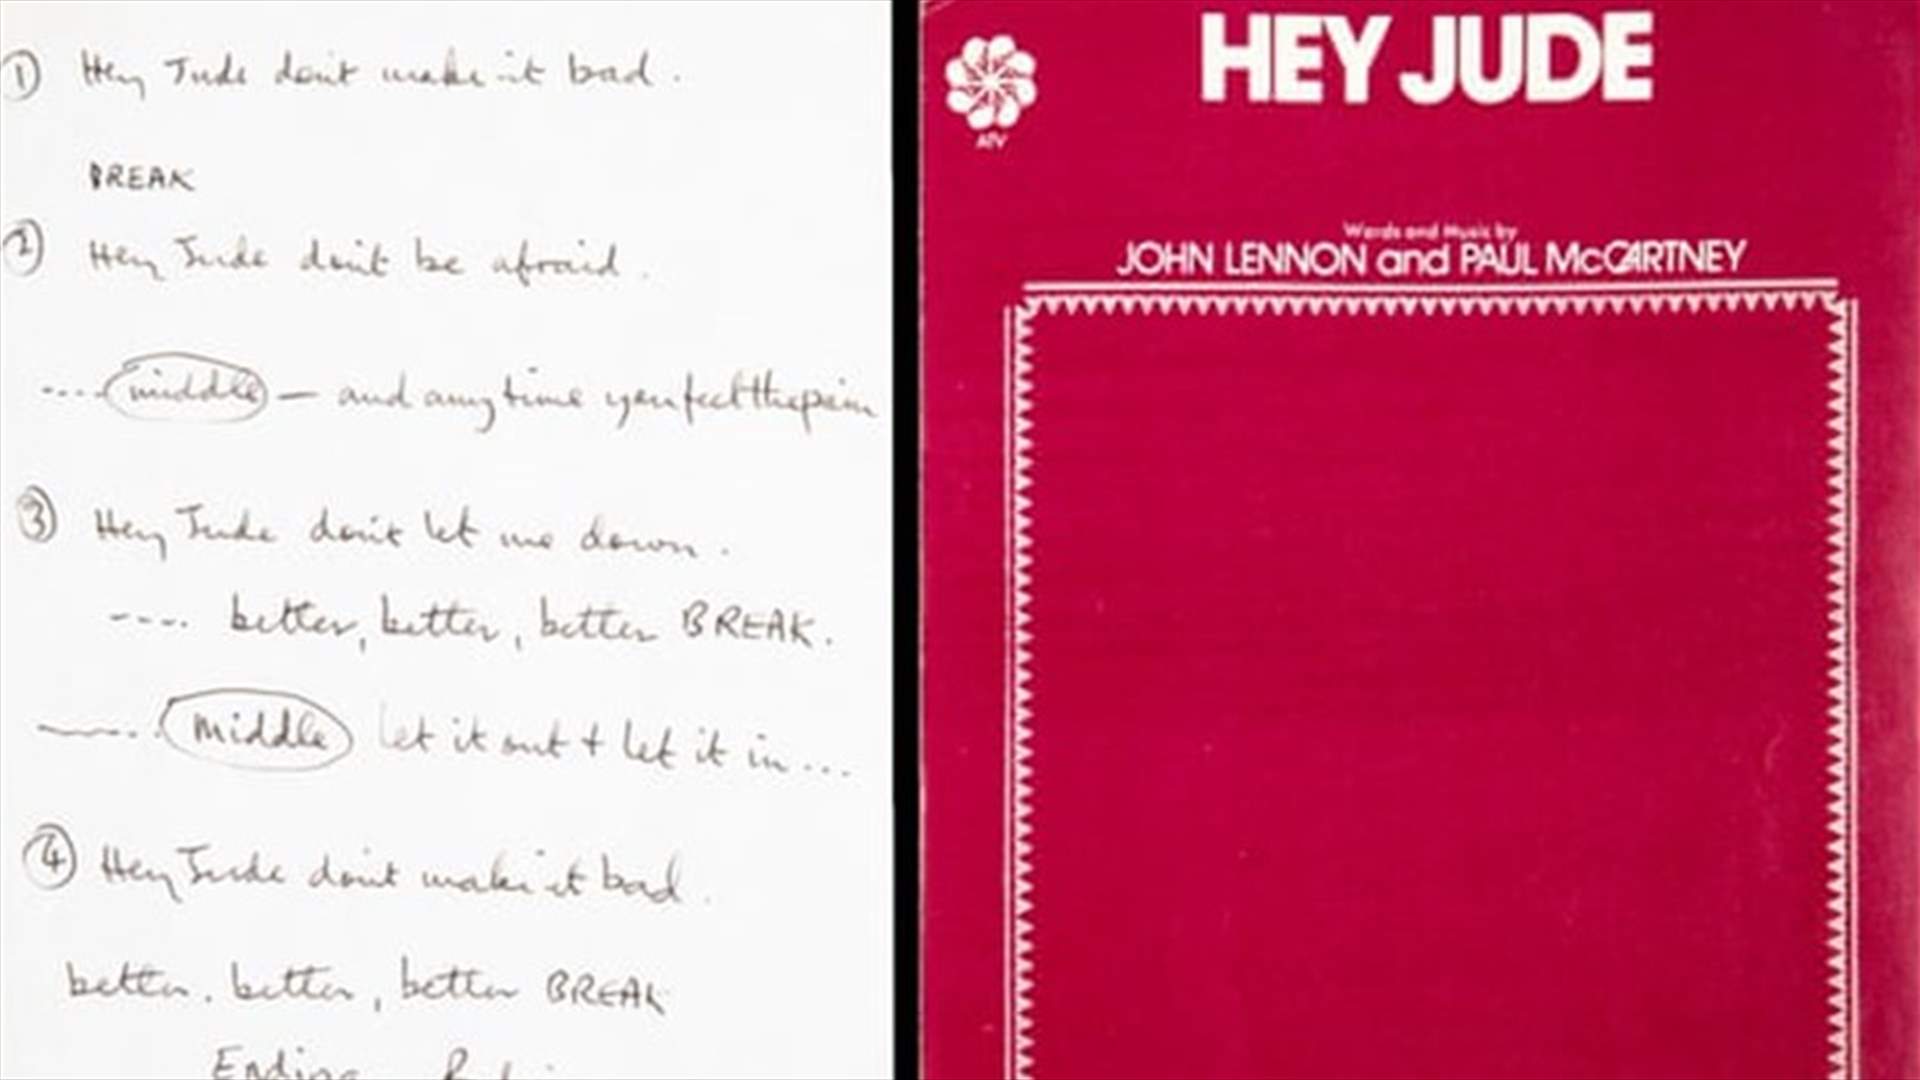 ① Hey Jude don't make it bad.
BREAK
② Hey Jude don't be afraid.
.... middle — and anytime you feel the pain
③ Hey Jude don't let me down.
---- better, better, better BREAK.
middle let it out + let it in ...
④ Hey Jude don't make it bad.
better. better, better BREAK
Ending
HEY JUDE
ATV
Words and Music by
JOHN LENNON and PAUL McCARTNEY